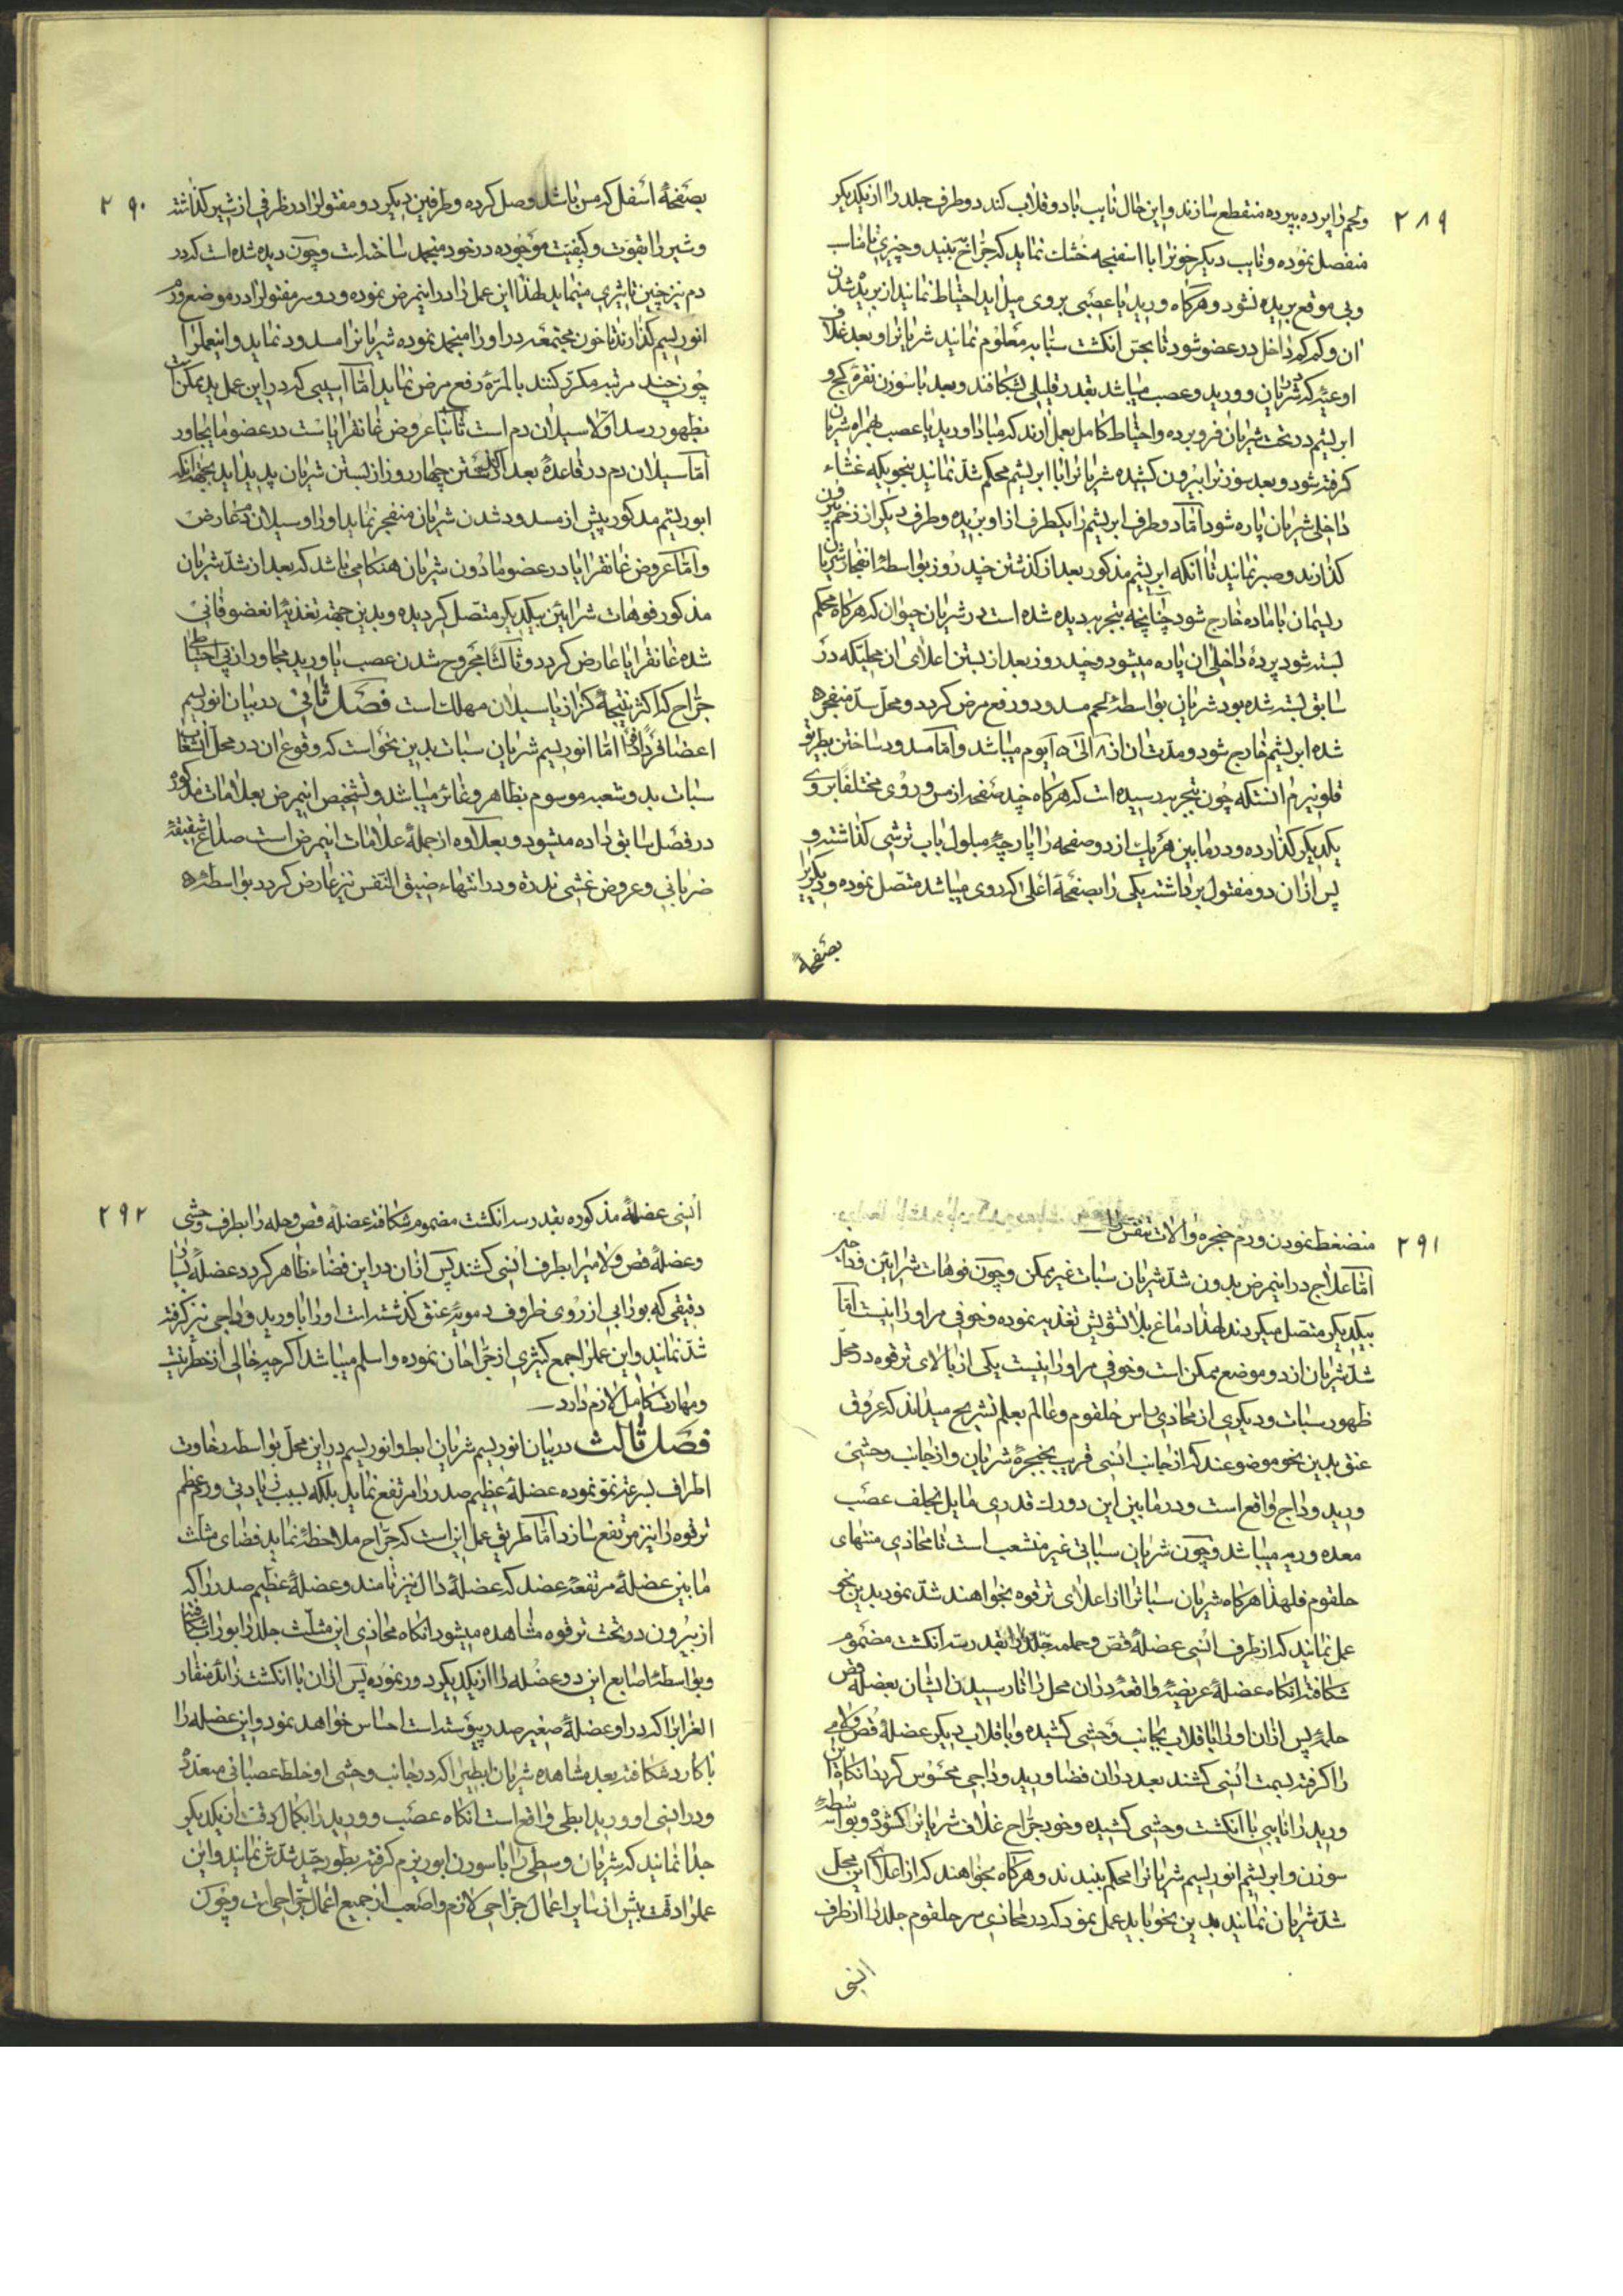 ۲۸۹
ولحم را پرده بپرده منقطع سازند و این حال نایب با دو قلاب کند دو طرف جلد را از یکدیگر
منفصل نموده و نایب دیگر خونرا با اسفنجه خشک نماید که جراح به بیند و چیزی نامناسب
و بی موقع بریده نشود و هرگاه ورید یا عصبی بروی میل آید احتیاط نمایند از بریده شدن
آن و کم کم داخل در عضو شود تا بجس انگشت سبابه معلوم نمایند شریانرا و بعد غلاف
اوعیه که شریان و ورید و عصب میباشد بقدر قلیلی بشکافند و بعد با سوزن نقره کج و
ابریشم در تحت شریان فرو برده و احتیاط کامل بعمل آرند که مبادا ورید یا عصب همراه شریان
گرفته شود و بعد سوزنرا بیرون کشیده شریانرا با ابریشم محکم شد نمایند بنحویکه غشاء
داخلی شریان پاره شود اما دو طرف ابریشم را یکطرف از او بریده و طرف دیگر از زخم بیرون
گذارند و صبر نمایند تا آنکه ابریشم مذکور بعد از گذشتن چند روز بواسطهٔ انفجار شریان
ریسمان با ماده خارج شود چنانچه بتجربه دیده شده است در شریان حیوان که هرگاه محکم
بسته شود پردهٔ داخلی آن پاره میشود و چند روز بعد از بستن اعلای آن محلیکه در
سابق بسته شده بود شریان بواسطهٔ لحم مسدود و رفع مرض گردد و محل سد منفجر
شده ابریشم خارج شود و مدت آن از ۸ الی ۱۵ یوم میباشد و اما مسدود ساختن بطریق
قلونیزم آنستکه چون بتجربه رسیده است که هرگاه چند صفحه از مس و روی مختلفا بروی
یکدیگر گذارده و در مابین هر یک از دو صفحه را پارچهٔ مبلول بآب ترشی گذاشته و
پس از آن دو مفتول برداشته یکی را بصفحهٔ اعلی که روی میباشد متصل نموده و دیگریرا
بصفحهٔ
۲۹۰
بصفحهٔ اسفل که مس باشد وصل کرده و طرفین دیگر دو مفتولرا در ظرفی از شیر گذاشته
و شیر را بقوت و کیفیت موجوده در خود منجمد ساخته است و چون دیده شده است که در
دم نیز چنین تاثیری مینماید لهذا این عمل را در اینمرض نموده و دو سر مفتولرا در موضع ورم
انوریسم گذارند تا خون مجتمعه در او را منجمد نموده شریانرا مسدود نماید و اینعملرا
چون چند مرتبه مکرر کنند بالمره رفع مرض نماید اما آسیبی که در این عمل ید ممکن است
بظهور رسد اولا سیلان دم است ثانیا عروض غانقرایاست در عضو ما یجاور
اما سیلان دم در قاعدهٔ بعد از گذشتن چهار روز از بستن شریان پدید آید بجهة آنکه
ابریشم مذکور پیش از مسدود شدن شریان منفجر نماید او را و سیلان دم عارض
و اما عروض غانقرایا در عضو مادون شریان هنگامی باشد که بعد از شد شریان
مذکور فوهات شرایین بیکدیگر متصل گردیده و بدین جهة تغذیه از عضو فانی
شده غانقرایا عارض گردد و ثالثا مجروح شدن عصب یا ورید مجاور از بی احتیاطی
جراح که اکثر نتیجهٔ کزاز یا سیلان مهلک است فصل ثانی در بیان انوریسم
اعضا فردا فردا اما انوریسم شریان سبات بدین نحو است که وقوع آن در محل انشعاب
سبات بدو شعبه موسوم بظاهر و غائر میباشد و تشخیص اینمرض بعلامات مذکوره
در فصل سابق داده میشود و بعلاوه از جملهٔ علامات اینمرض است صداع شقیقهٔ
ضربانی و عروض غشی ندرة و در انتهاء ضیق النفس نیز عارض گردد بواسطهٔ
۲۹۱
منضغط نمودن ورم حنجره و آلات تنفس را
اما علاج در اینمرض بدون شد شریان سبات غیر ممکن و چون فوهات شرایین وداجی
بیکدیگر متصل میگردند لهذا دماغ بلا تشویش تغذیه نموده و خوفی مر او را نیست اما
شد شریان از دو موضع ممکن است و خوفی مر او را نیست یکی از بالای ترقوه در محل
ظهور سبات و دیگری از محاذی راس حلقوم و عالم بعلم تشریح میداند که عروق
عنق بدین نحو موضوعند که از جانب انسی قریب بحنجرهٔ شریان و از جانب وحشی
ورید وداج واقع است و در مابین این دو رک قدری مایل بخلف عصب
معده و ریه میباشد و چون شریان سباتی غیر منشعب است تا محاذی منتهای
حلقوم فلهذا هرگاه شریان سباترا از اعلای ترقوه بخواهند شد نمود بدین نحو
عمل نمایند که از طرف انسی عضلهٔ قص و حلمه جلد را بقدر سه انگشت مضموم
شکافته آنگاه عضلهٔ عریضهٔ واقعه در آن محل را تا رسیدن ایشان بعضلهٔ قص
حلمهٔ پس از آن او را با قلاب بجانب وحشی کشیده و با قلاب دیگر عضلهٔ قص و لامی
را گرفته بسمت انسی کشند بعد در آن فضا ورید وداجی محسوس گردد آنگاه این
ورید را نایبی با انگشت وحشی کشیده و خود جراح غلاف شریانرا گشوده و بواسطهٔ
سوزن و ابریشم انوریسم شریانرا محکم ببندند و هرگاه بخواهند که از اعلای این محل
شد شریان نمایند بدین نحو باید عمل نمود که در محاذی سر حلقوم جلد را از طرف
انسی
۲۹۲
انسی عضلهٔ مذکوره بقدر سه انگشت مضموم شکافته عضلهٔ قص و حلمه را بطرف وحشی
و عضلهٔ قص و لامیرا بطرف انسی کشند پس از آن در این فضاء ظاهر گردد عضلهٔ
دقیقی که بورابی از روی ظروف دمویهٔ عنق گذشته است او را با ورید وداجی نیز گرفته
شد نمایند و این عملرا جمع کثیری از جراحان نموده و اسلم میباشد اگر چه خالی از خطر نیست
و مهارت کامل لازم دارد
فصل ثالث در بیان انوریسم شریان ابط و انوریسم در این محل بواسطهٔ رخاوت
اطراف بسرعة نمو نموده عضلهٔ عظیم صدر را مرتفع نماید بلکه بسبب زیادتی ورم عظم
ترقوه را نیز مرتفع سازد اما طریق عمل این است که جراح ملاحظه نماید فضای مثلث
مابین عضلهٔ مرتفعهٔ عضد که عضلهٔ دال نیز نامند و عضلهٔ عظیم صدر را که
از بیرون در تحت ترقوه مشاهده میشود آنگاه محاذی این مثلث جلد را بوراب شکافته
و بواسطهٔ اصابع این دو عضله را از یکدیگر دور نموده پس از آن با انگشت زائد منقار
الغرابرا که در او عضلهٔ صغیر صدر پیوسته است احساس خواهد نمود و این عضله را
با کارد شکافته بعد مشاهده شریان ابطیرا که در جانب وحشی او خلط عصبانی متعدد
و در انسی او ورید ابطی واقع است آنگاه عصب و ورید را بکمال دقت از یکدیگر
جدا نمایند که شریان وسطی را با سوزن انوریزم گرفته بطور جید شدش نمایند و این
عملرا دقت بیش از سایر اعمال جراحی لازم و اصعب از جمیع اعمال جراحی است و چون